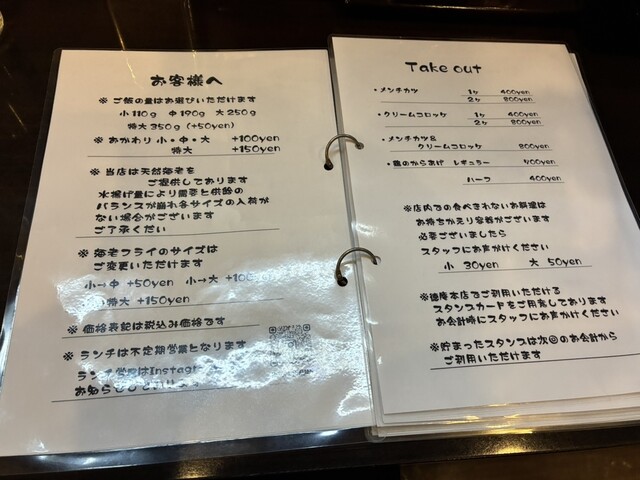 お客様へ
※ ご飯の量はお選びいただけます
小110g 中190g 大250g
特大350g (+50yen)
※ おかわり 小・中・大 +100yen
特大 +150yen
※ 当店は天然海老を
ご提供しております
水揚げ量により需要と供給の
バランスが崩れ各サイズの入荷が
ない場合がございます
ご了承ください
※ 海老フライのサイズは
ご変更いただけます
小→中 +50yen 小→大 +100
特大 +150yen
※ 価格表記は税込み価格です
※ ランチは不定期営業となります
ランチ営業はInstag
お知らせ
Take out
・メンチカツ 1ヶ 400yen
2ヶ 800yen
・クリームコロッケ 1ヶ 400yen
2ヶ 800yen
・メンチカツ&
クリームコロッケ 800yen
・鶏のからあげ レギュラー 700yen
ハーフ 400yen
※店内での食べきれないお料理は
お持ちかえり容器がございます
必要ございましたら
スタッフにお声がけください
小 30yen 大 50yen
※徳庵本店でご利用いただける
スタンプカードをご用意しております
お会計時にスタッフにお声がけください
※貯まったスタンプは次回のお会計から
ご利用いただけます